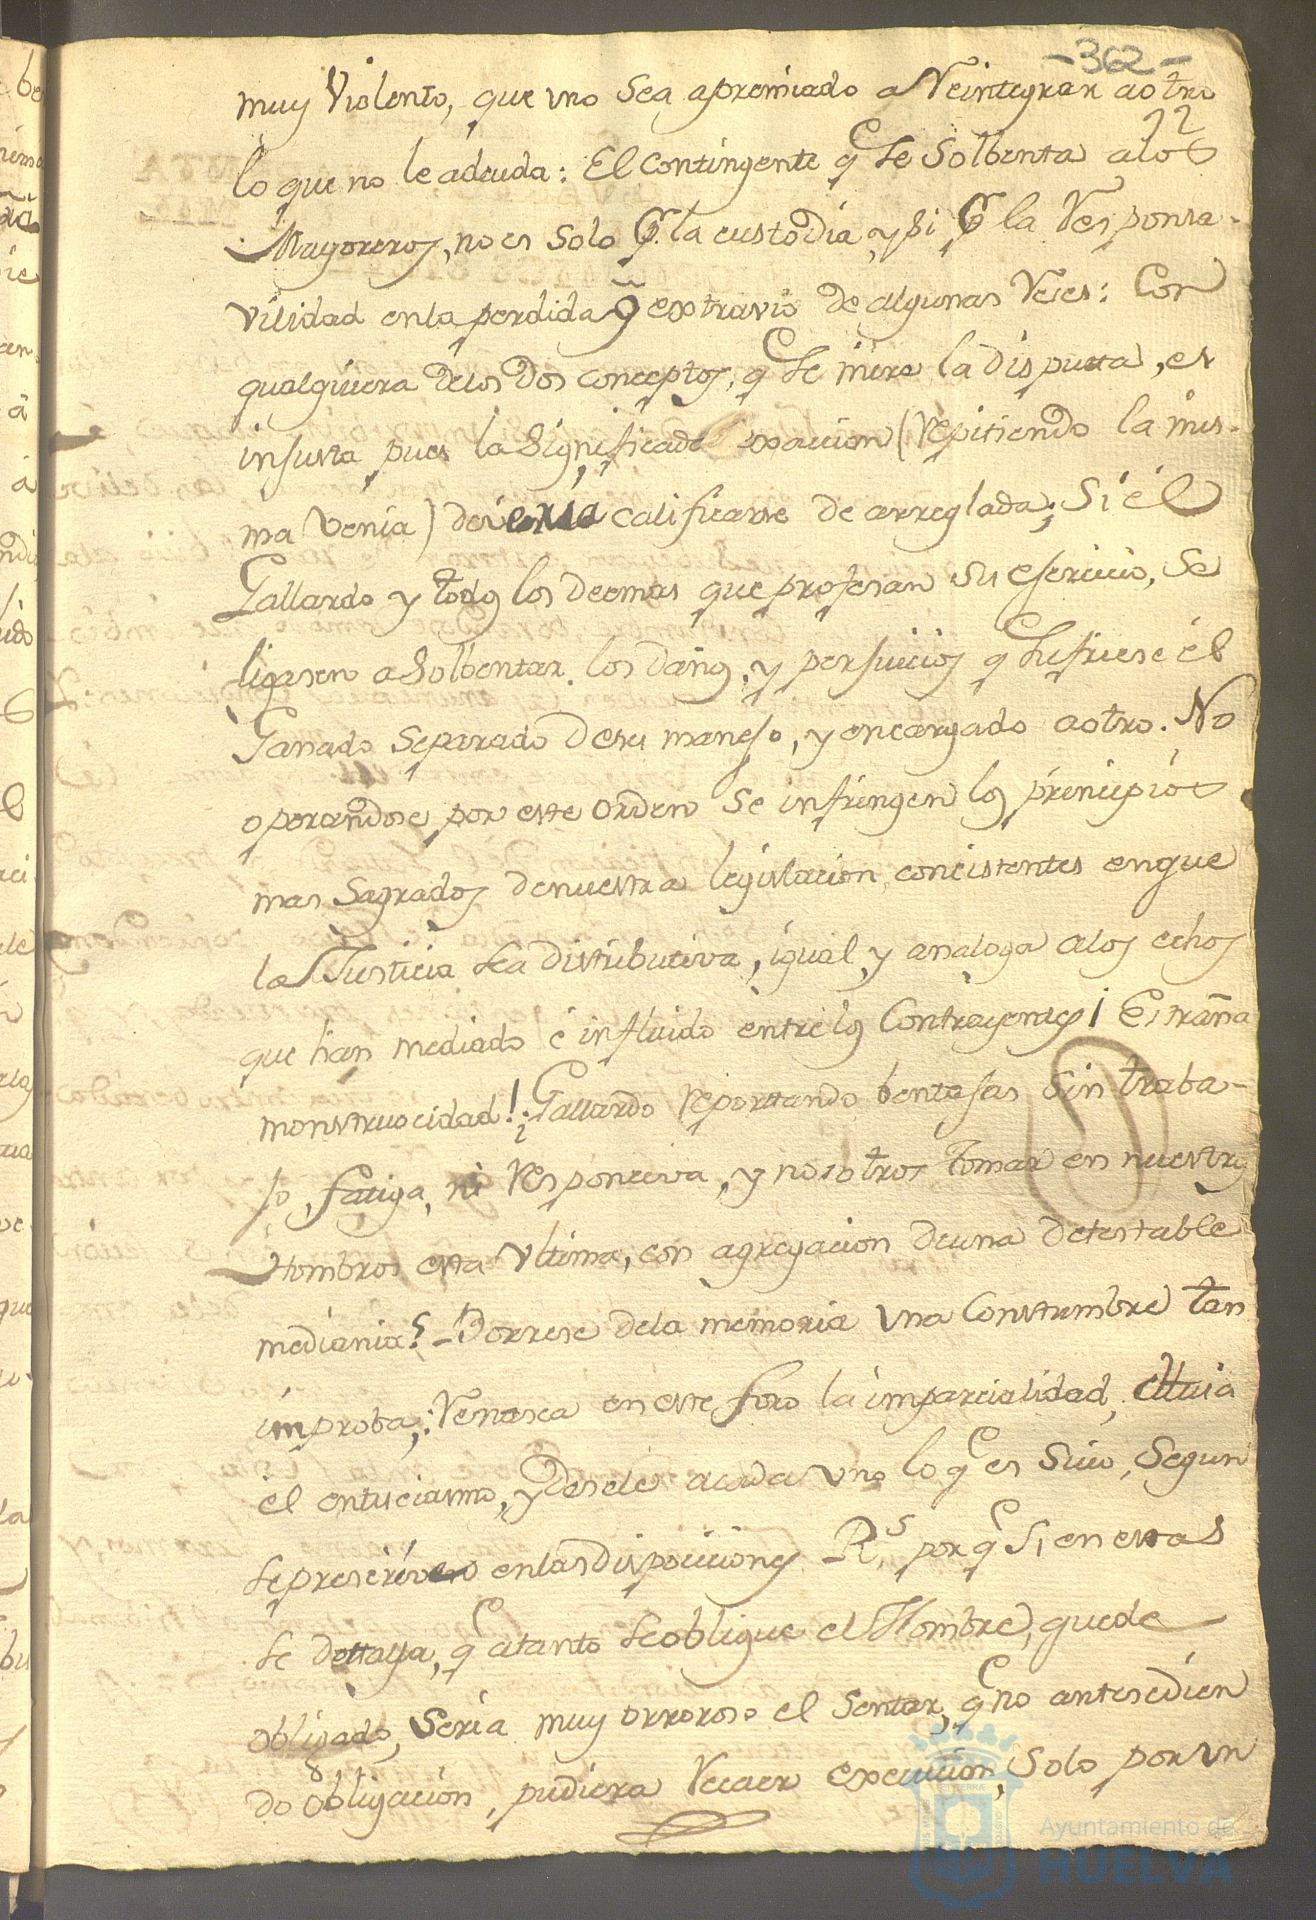 -362-
muy Violento, que uno sea apremiado a Reintegrar aotro
12
lo que no le adeuda: El contingente q.e se Solbenta alos
Mayoreros, no es solo p.r la custodia, y si p.r la Responsa-
vilidad enla perdida ô extravio de algunas Reses: Con
qualquiera delos dos conceptos, q.e se mire la disputta, es
injusta pues la significada exaccion (Repitiendo la mis-
ma Venia) deveria calificarse de arreglada; Si él
Gallardo y todos los demas que profesan su ejercicio, se
ligasen a Solbentar los daños, y perjuicios q.e sufriese él
Ganado separado desu manejo, y encargado aotro. No
operandose por este orden se infringen los principios
mas Sagrados denuestra legislacion, concistentes enque
la Justicia sea distributiva, igual, y analoga alos echos
que han mediado é influido entre los Contrayentes ¡ Estraña
monstruocidad! ¿Gallardo Reporttando bentajas sin traba-
jo, fatiga, ni Responciva, y nosotros tomar en nuestros
Hombros esta Ultima, con agregacion deuna detestable
mediania? Borrese dela memoria una Constumbre tan
improba; Renasca en este foro la imparcialidad,
el entuciasmo, y desele acada uno lo q.e es Suio, Segun
se prescriven enlas disposiciones R.s, por q.e si en estas
se dettaya, q.e atanto se obligue el Hombre, quede
obligado, Seria muy orroroso el Sentar, q.e no antesedien
do obligacion, pudiera Recaer execucion, Solo por un
Ayuntamiento de
HUELVA